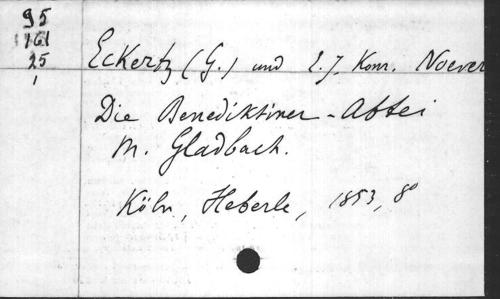 95
161
25
Eckertz (G.) und E. J. Konr. Noever
Die Benediktiner-Abtei
M. Gladbach.
Köln, Heberle, 1853, 8°